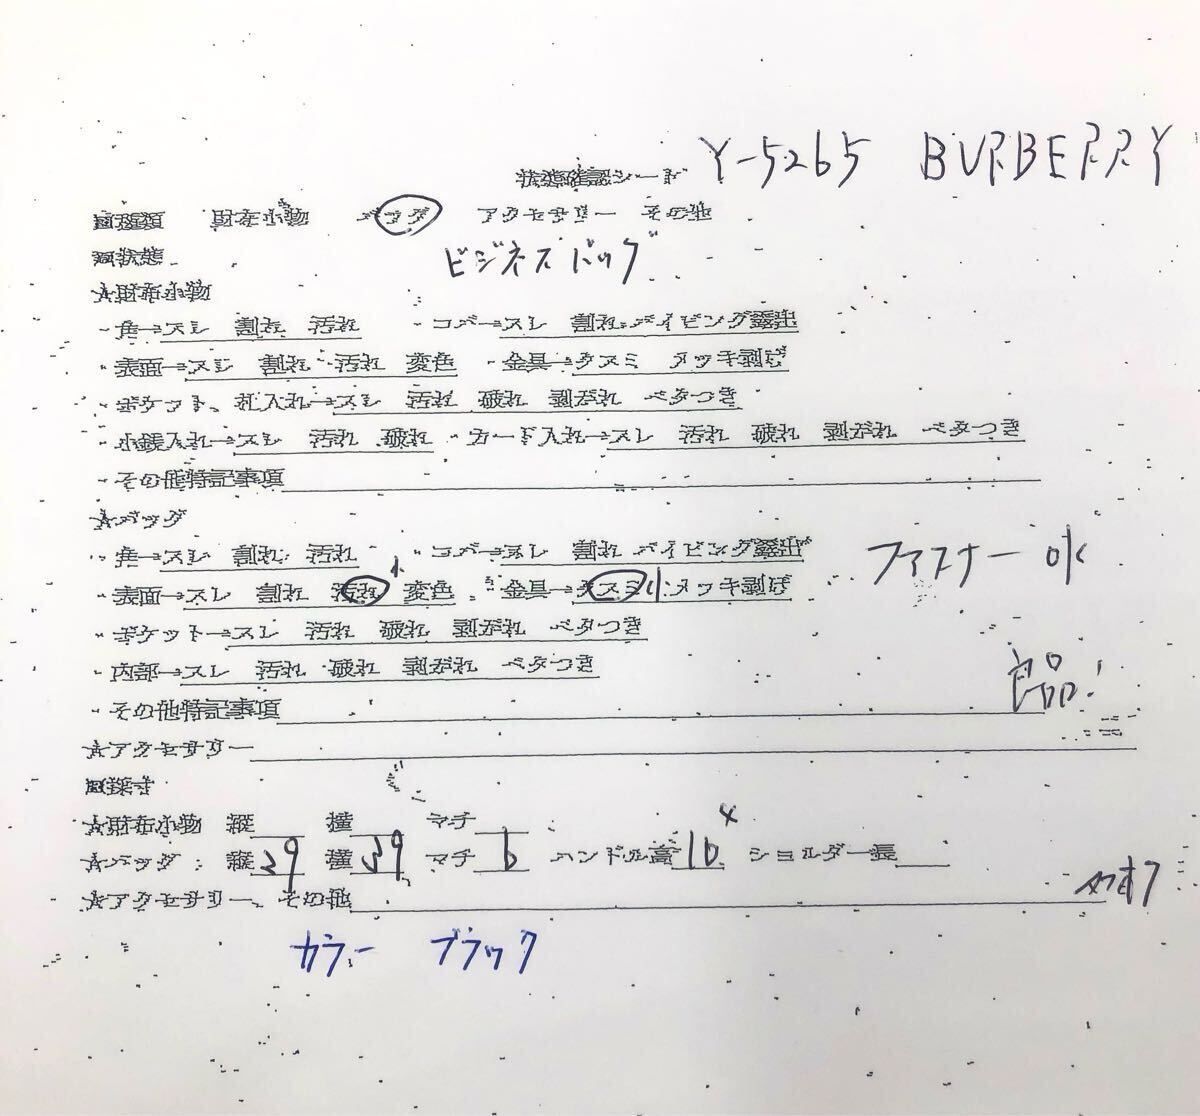 Y-5265 BURBERRY
状態確認シート
■種類 財布小物 バッグ アクセサリー その他
■状態 ビジネスバッグ
★財布小物
・角→スレ 割れ 汚れ ・コバ→スレ 割れ パイピング露出
・表面→スレ 割れ 汚れ 変色 ・金具→クスミ メッキ剥げ
・ポケット、札入れ→スレ 汚れ 破れ 剥がれ ベタつき
・小銭入れ→スレ 汚れ 破れ ・カード入れ→スレ 汚れ 破れ 剥がれ ベタつき
・その他特記事項
★バッグ
・角→スレ 割れ 汚れ ・コバ→スレ 割れ パイピング露出
ファスナー ok
・表面→スレ 割れ 汚れ 小 変色 ・金具→クスミ 小 メッキ剥げ
・ポケット→スレ 汚れ 破れ 剥がれ ベタつき
・内部→スレ 汚れ 破れ 剥がれ ベタつき
良品!
・その他特記事項
★アクセサリー
■採寸
★財布小物 縦 横 マチ
★バッグ: 縦 29 横 39 マチ 6 ハンドル高 10 ショルダー長
★アクセサリー、その他
カラー ブラック